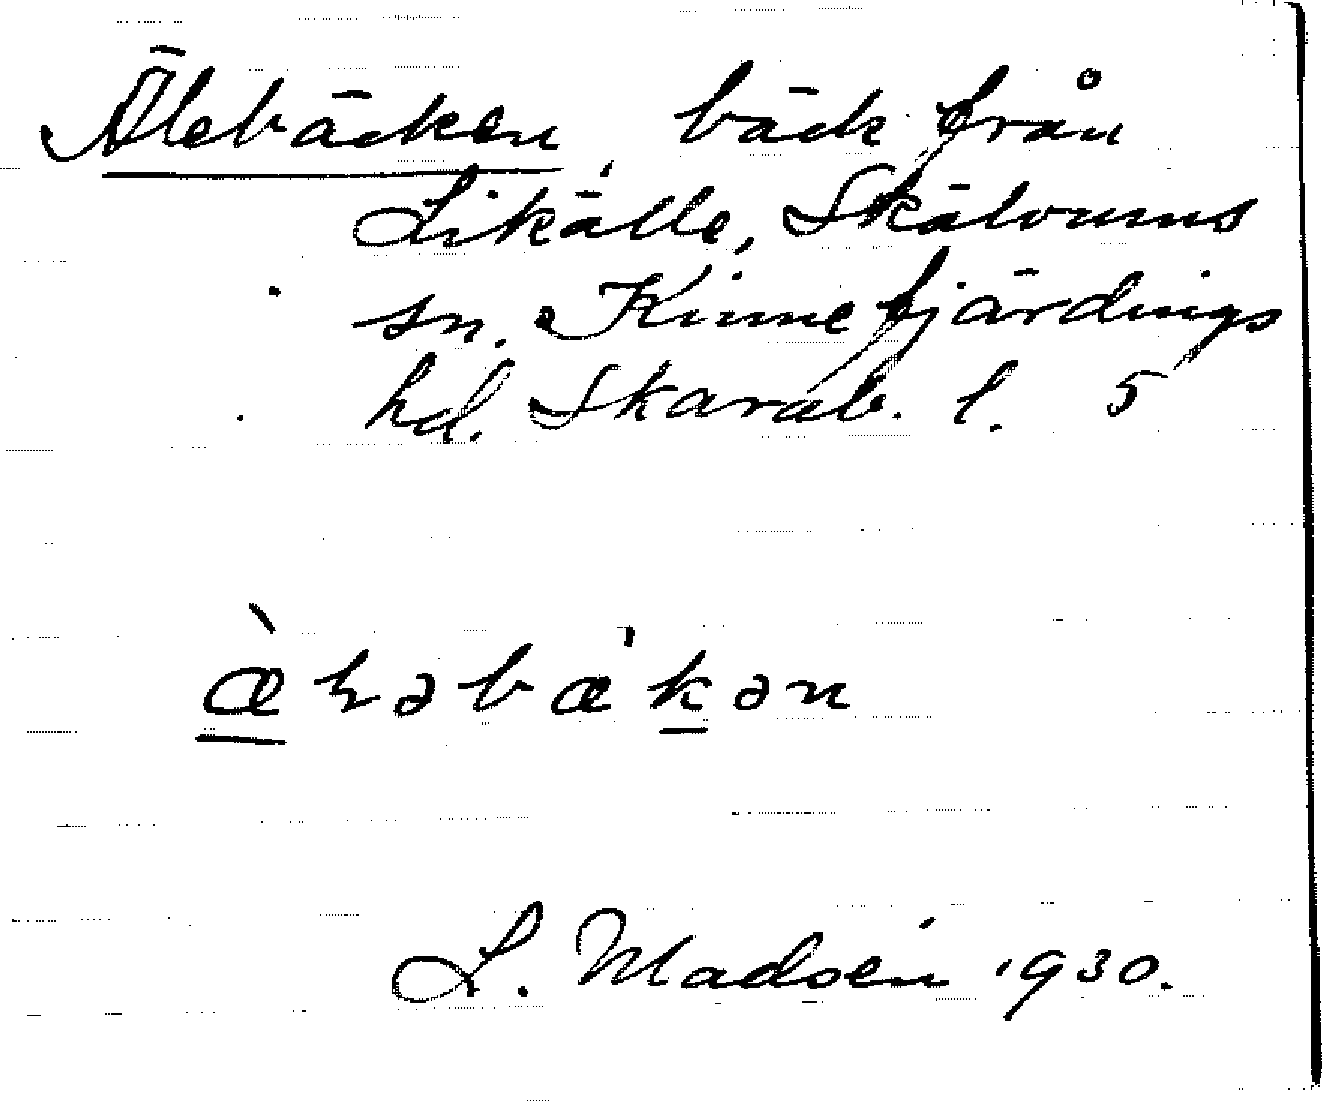 Älebäcken, bäck från
Likälle, Skälvums
sn. Kinnefjärdings
hd. Skarab. l. 5
æ̀ləbæ'kən
L. Madsén 1930.